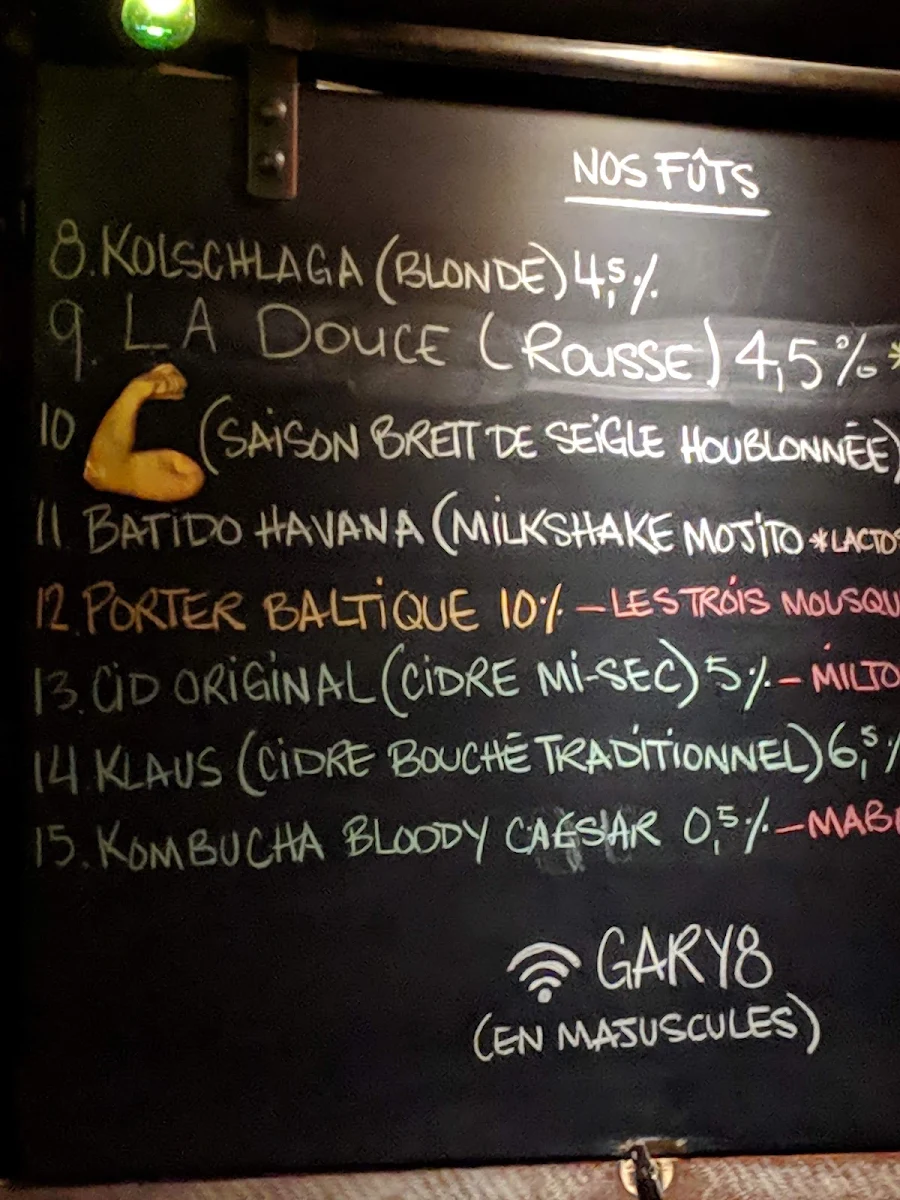 NOS FÛTS
8. KOLSCHLAGA (BLONDE) 4,5%
9. LA DOUCE (ROUSSE) 4,5% *
10 (SAISON BRETT DE SEIGLE HOUBLONNÉE)
11 BATIDO HAVANA (MILKSHAKE MOJITO *LACTOS
12. PORTER BALTIQUE 10% – LES TROIS MOUSQU
13. CID ORIGINAL (CIDRE MI-SEC) 5% – MILTO
14 KLAUS (CIDRE BOUCHÉ TRADITIONNEL) 6,5%
15. KOMBUCHA BLOODY CAESAR 0,5% – MAB
GARY8
(EN MAJUSCULES)